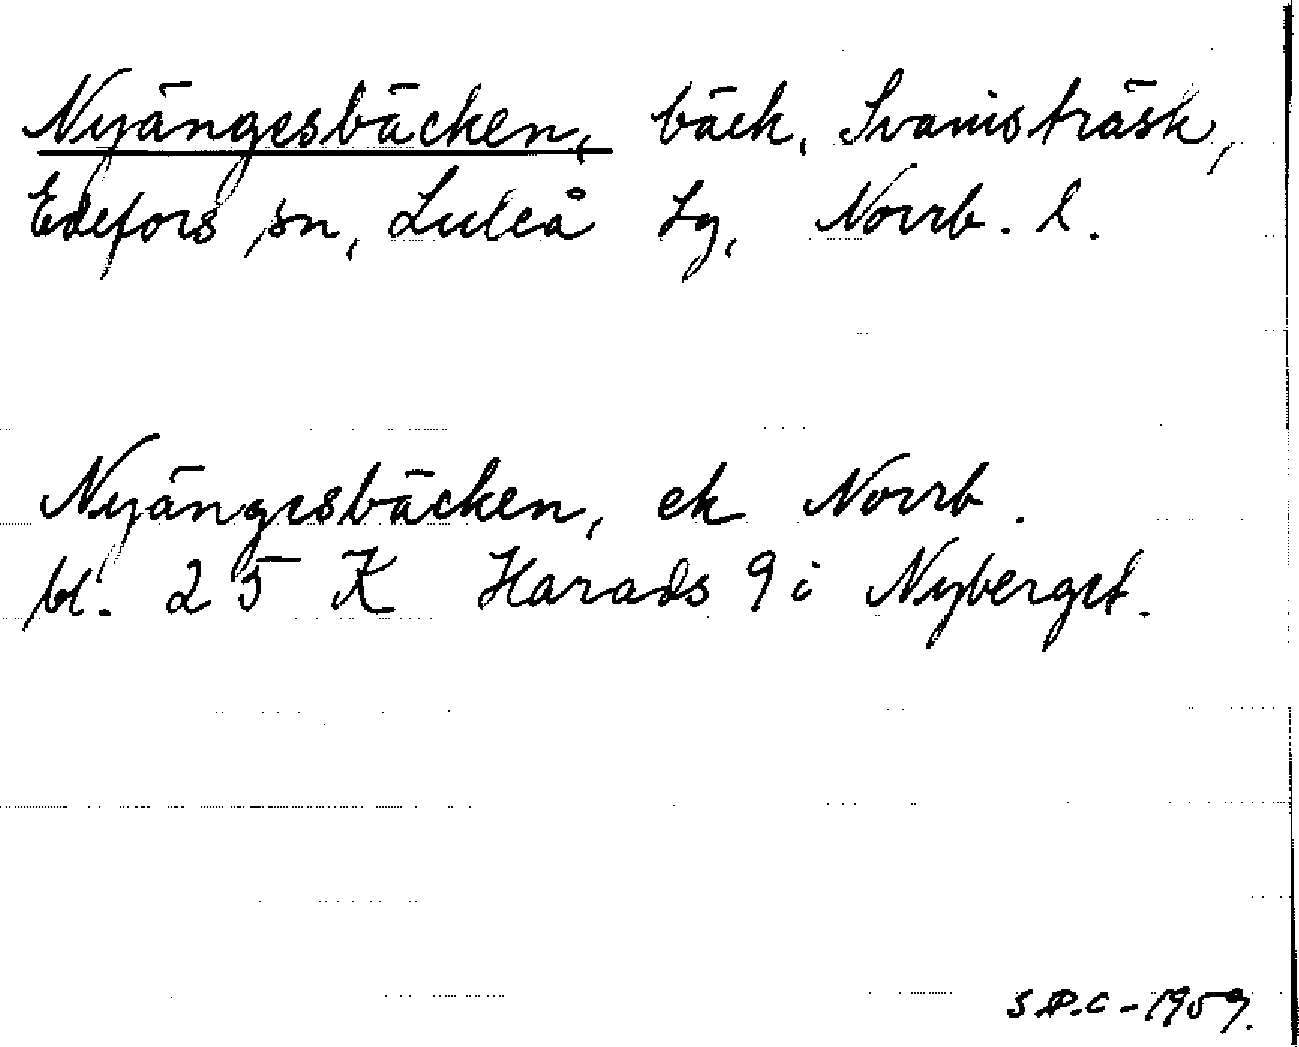 Nyängesbäcken, bäck, Svanisträsk,
Edefors sn, Luleå tg, Norrb. l.
Nyängesbäcken, ek Norrb.
bl. 25 K Harads 9 i Nyberget.
S.P.C - 1959.